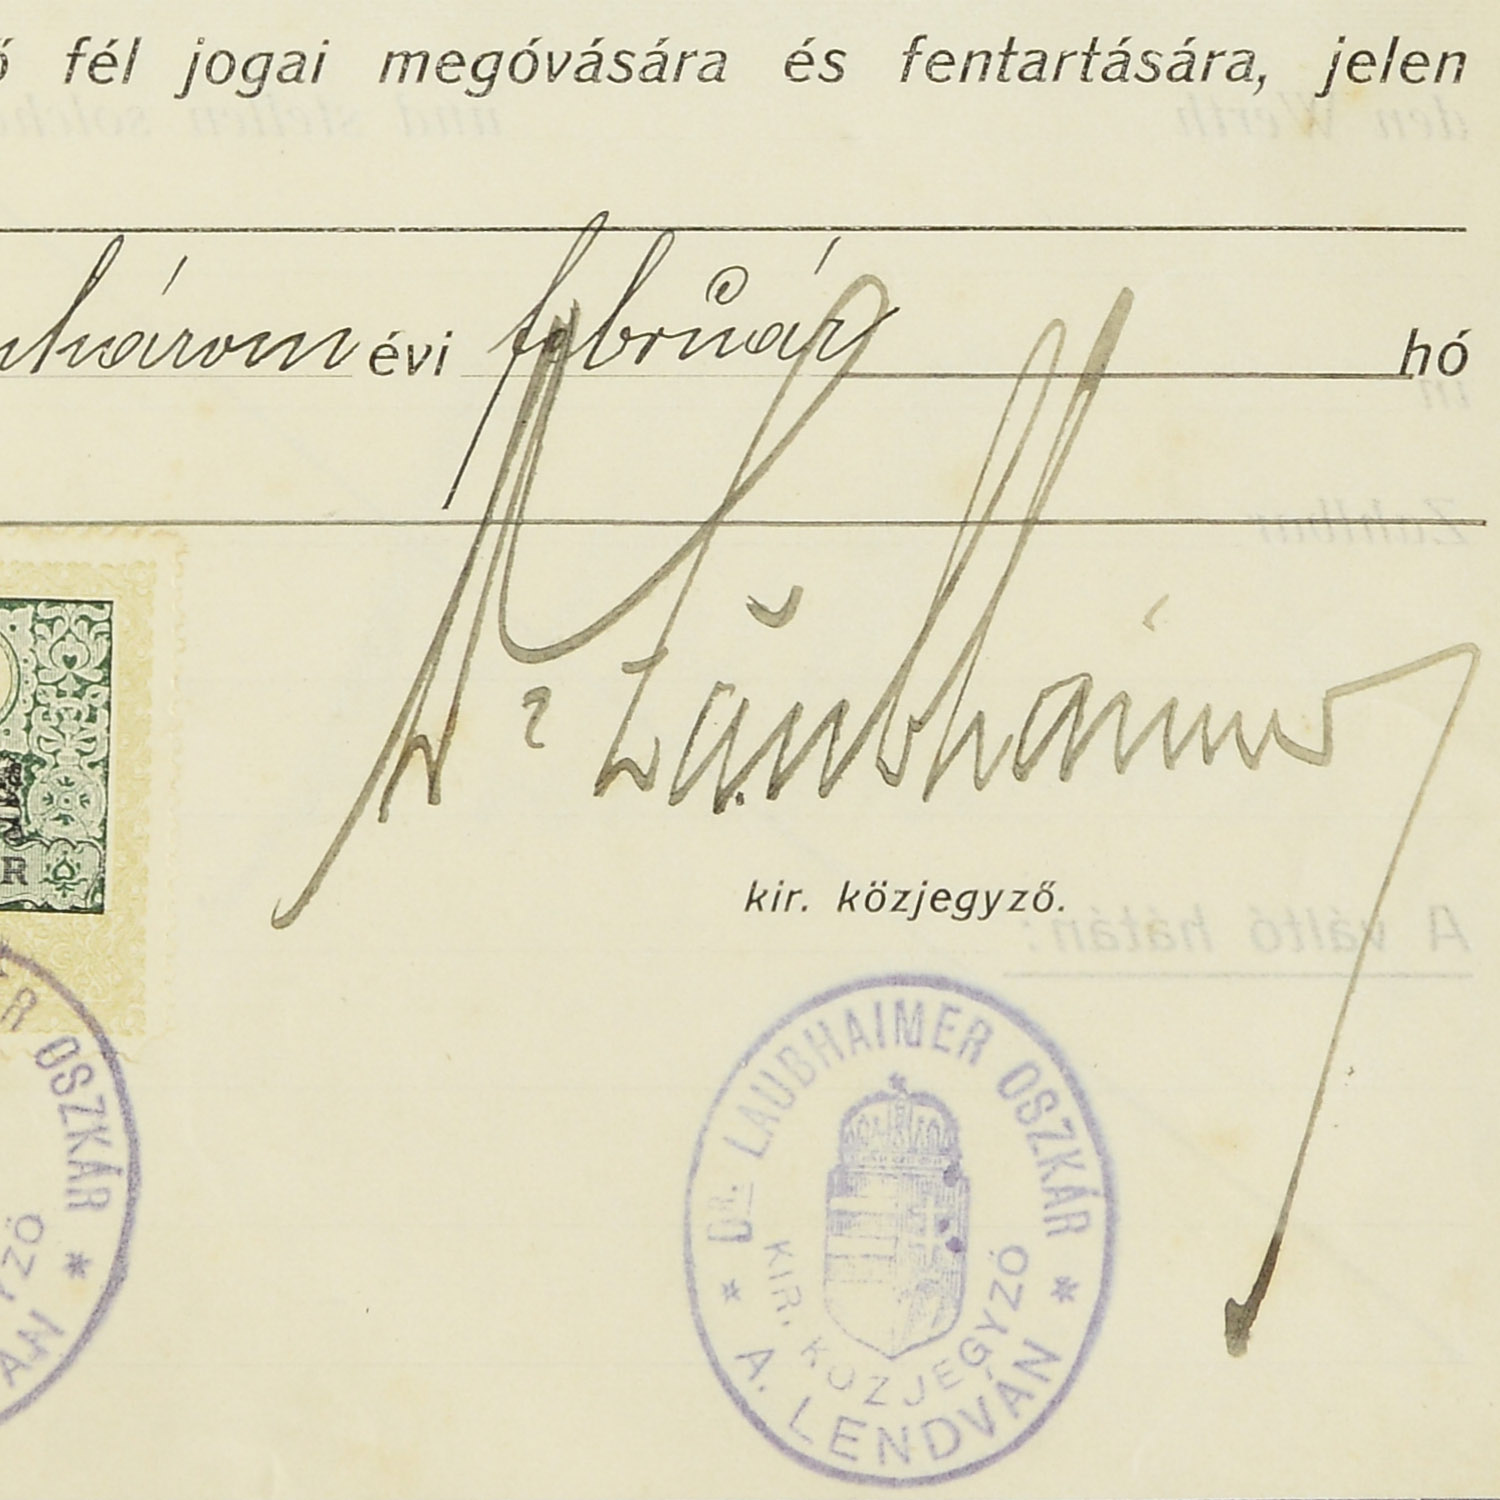 ő fél jogai megóvására és fentartására, jelen
három évi február hó
Dr Laubhaimer
kir. közjegyző.
R
R OSZKÁR *
YZŐ
ÁN
* DR. LAUBHAIMER OSZKÁR *
KIR. KÖZJEGYZŐ
A. LENDVÁN
den Werth und stellen solche
in
Zahlbar
A váltó hátán: